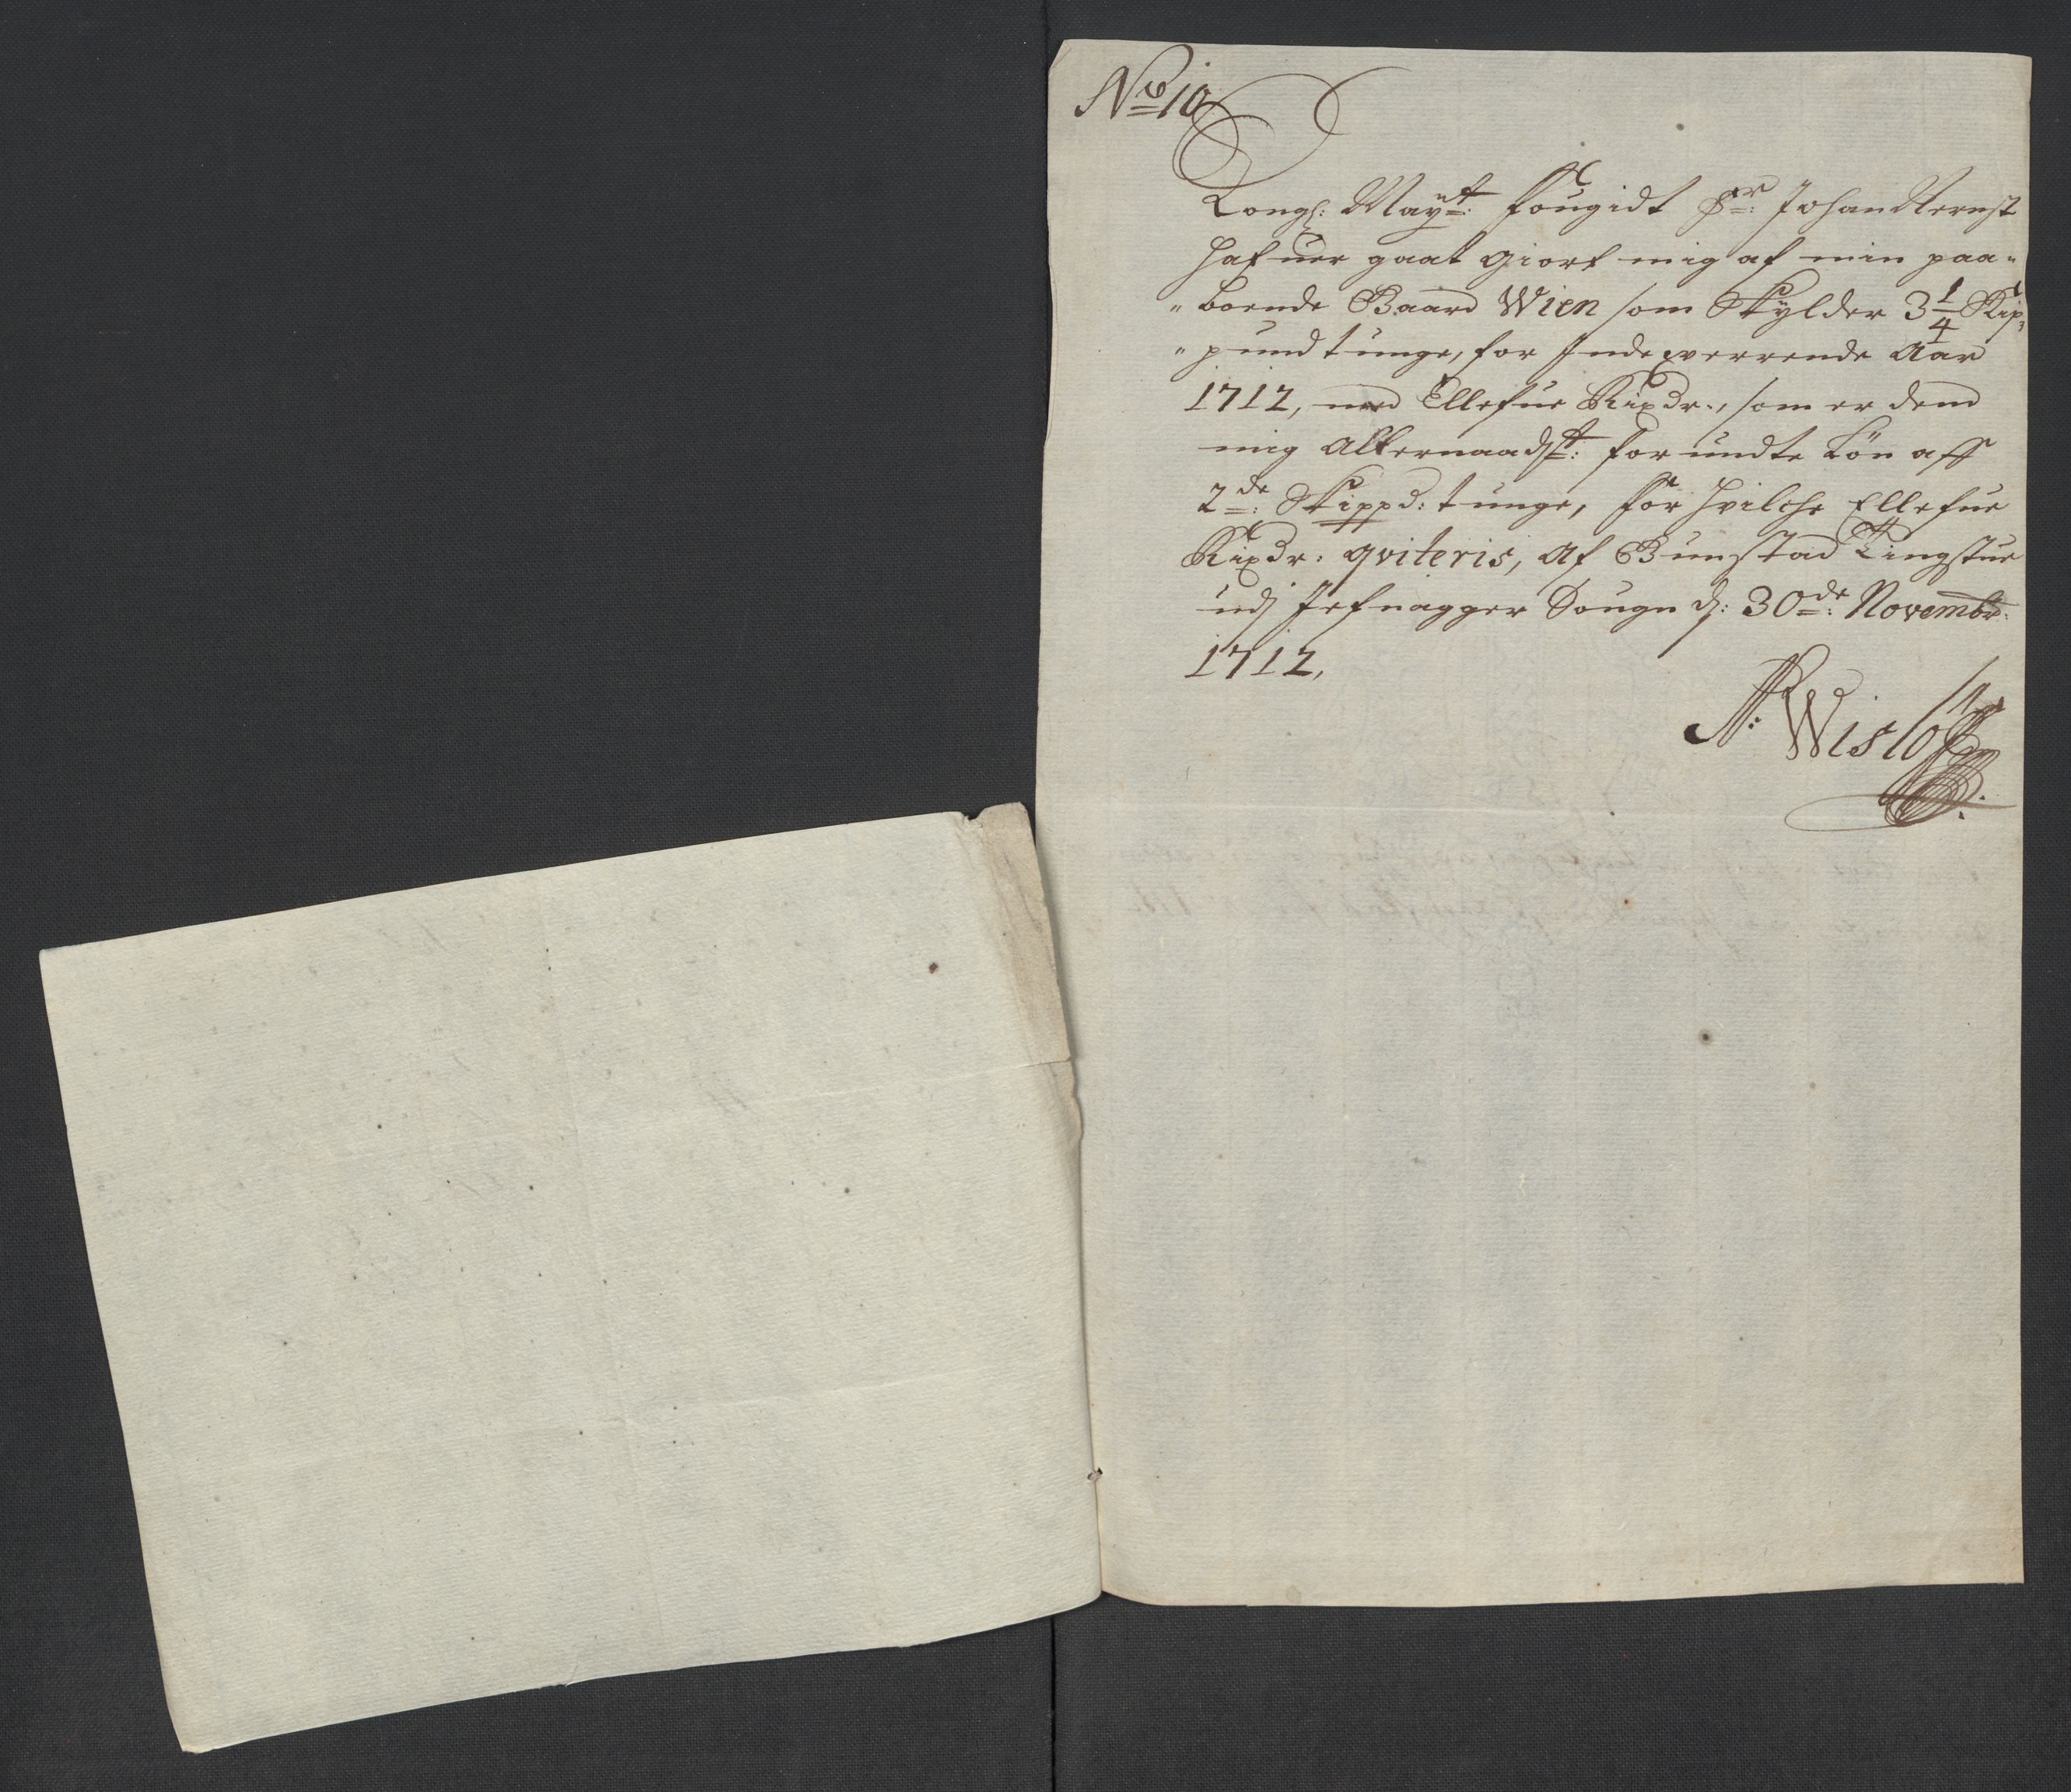 No 10
Kongl: Mayt: Fougidt Sr: Johan Ernst
hafuer gaat giort mig af min paa-
"boende Gaard Wien som Skylder 3 1/4 Skip-
"pund tunge, for Indeværrende Aar
1712, med Ellefue Rixdr., som er dend
mig Allernaadst: forundte Løn aff
2de: Skippd: tunge, for hvilche Ellefue
Rixdr: qviteris, Af Bunstad Tingstue
udj Jefnagger Sougn d: 30de: Novembr:
1712,
Wisløff